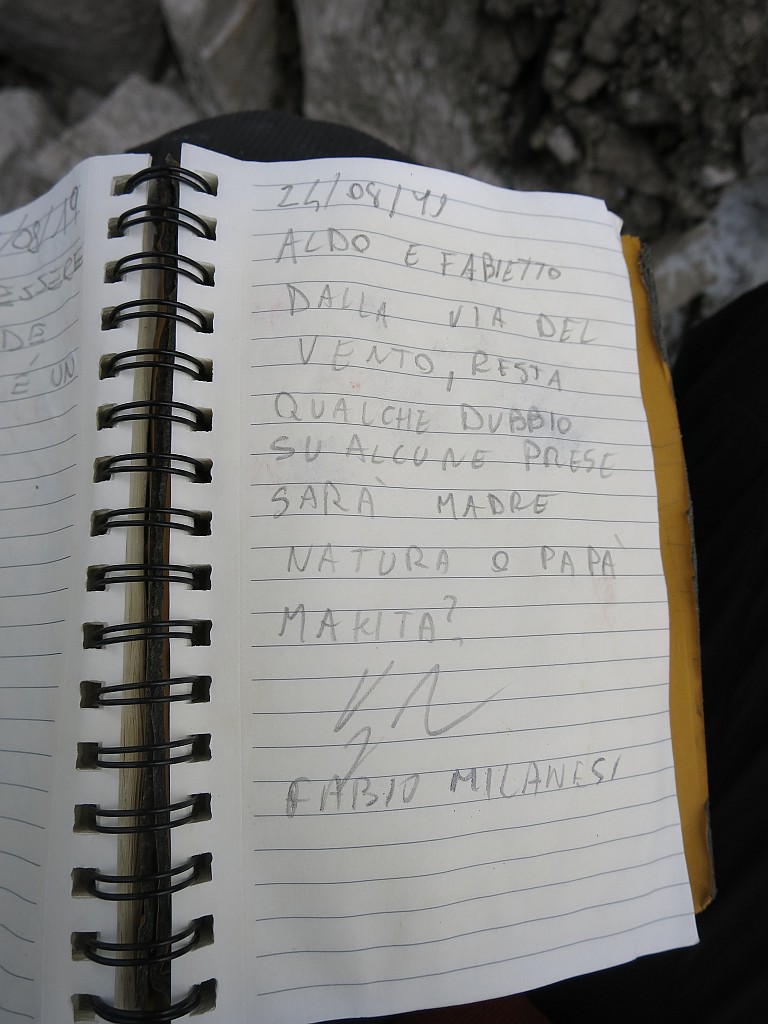 /08/19
ESSERE
DE
È UN
24/08/19
ALDO E FABIETTO
DALLA VIA DEL
VENTO, RESTA
QUALCHE DUBBIO
SU ALCUNE PRESE
SARÀ MADRE
NATURA O PAPÀ
MAKITA?
FABIO MILANESI